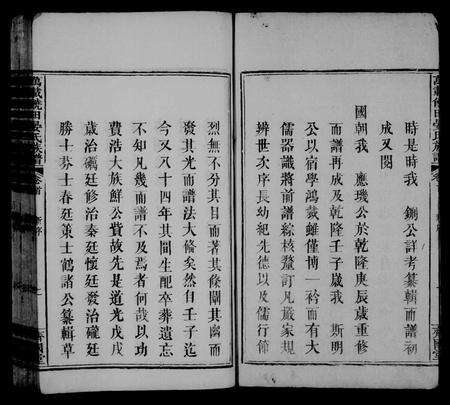 時是時我　鍘公詳考纂輯而譜初
成又閱
國朝我　應璣公於乾隆庚辰歲重修
而譜再成及乾隆壬子歲我　斯明
公以宿學鴻裁雖僅博一衿而有大
儒器識將前譜綜核釐訂凡嚴家規
辨世次序長幼紀先德以及儒行節
烈無不分其目而著其條闡其幽而
發其光而譜法大備矣然自壬子迄
今又八十四年其間生配卒葬遺忘
不知凡幾而譜不及焉者何哉以功
費浩大族鮮公費故先是道光戊戌
歲治鵷廷修治秦廷懷廷發治礲廷
勝士芬士春廷策士鶴諸公纂輯草